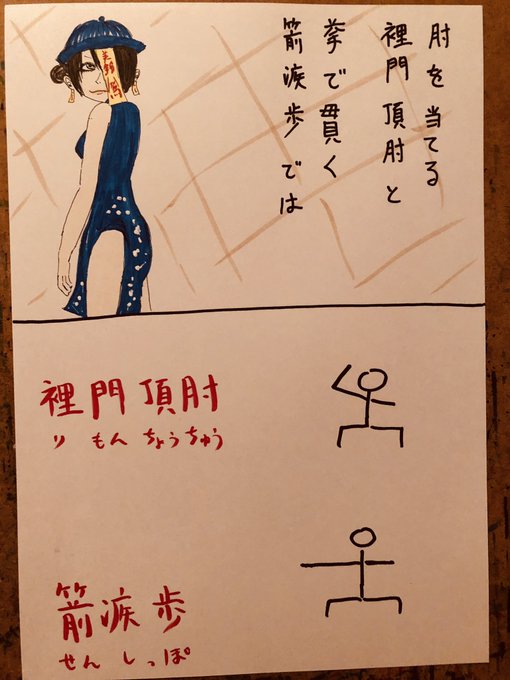 肘を当てる
裡門頂肘と
拳で貫く
箭疾歩では
裡門頂肘
り もん ちょうちゅう
箭疾歩
せん しっぽ